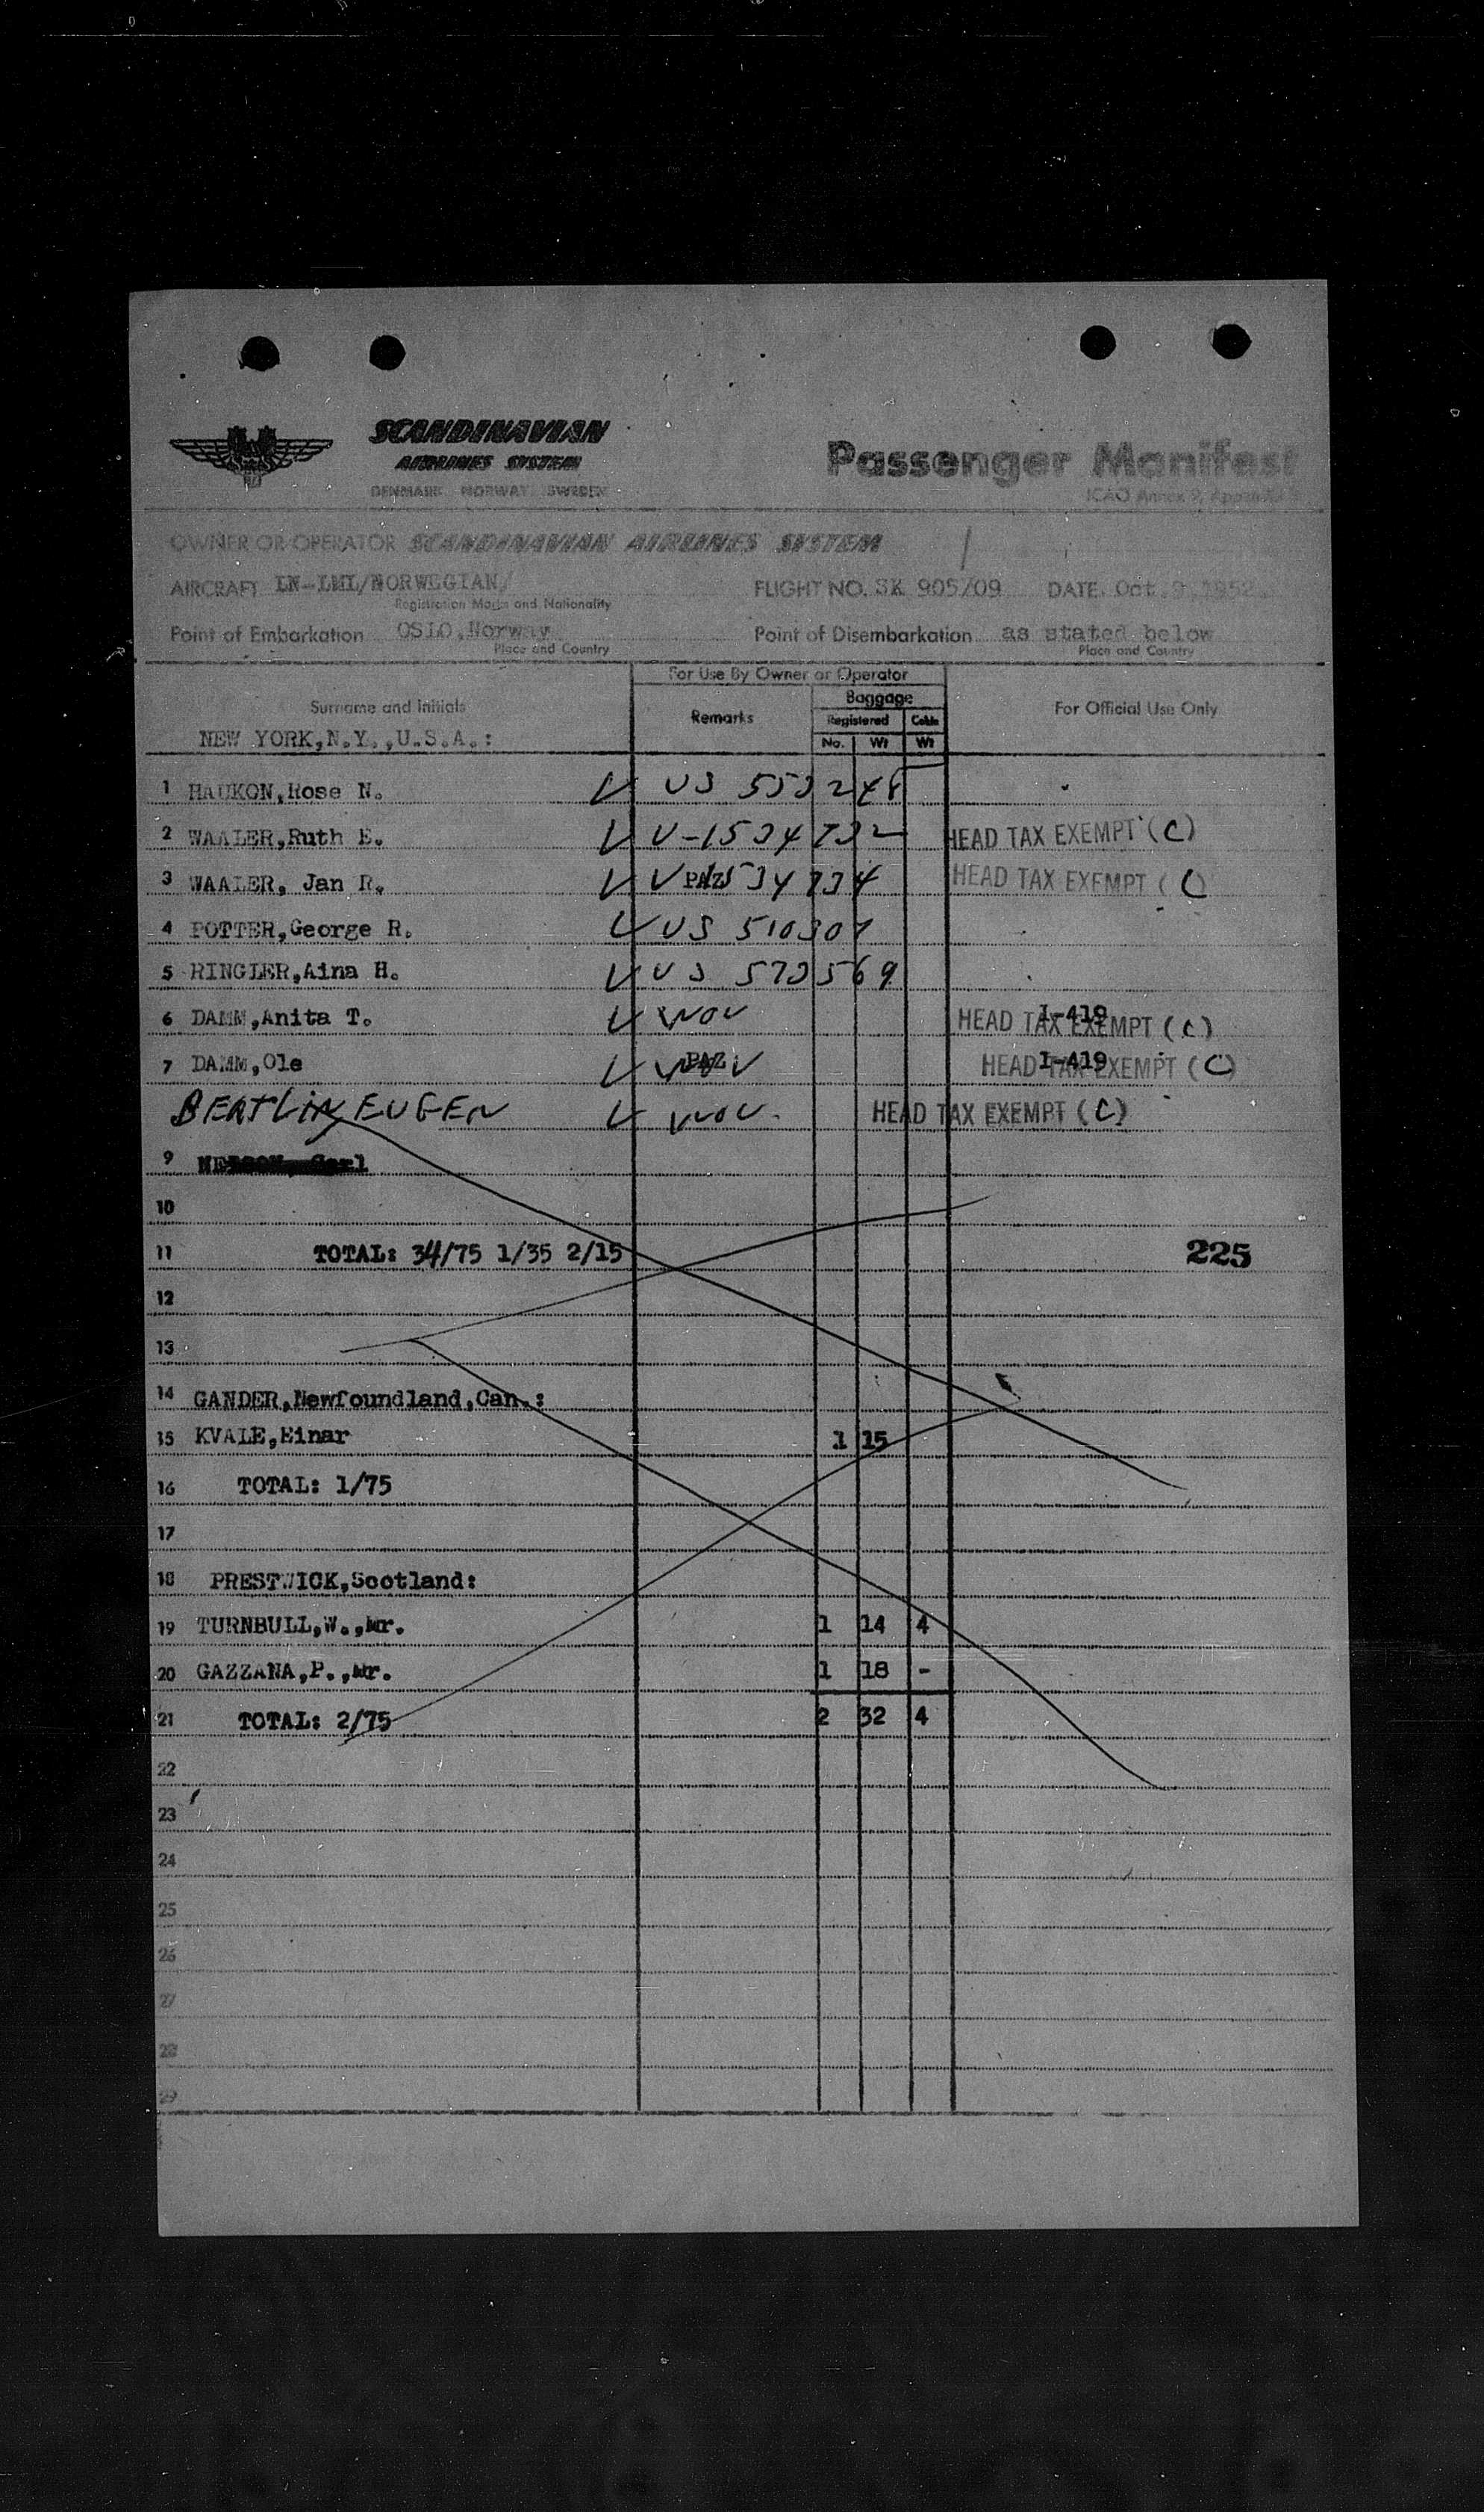 SCANDINAVIAN
AIRLINES SYSTEM
DENMARK NORWAY SWEDEN
Passenger Manifest
ICAO Annex 9, Appendix
OWNER OR OPERATOR SCANDINAVIAN AIRLINES SYSTEM
AIRCRAFT LN-LMI/NORWEGIAN/ FLIGHT NO. SK 905/09 DATE Oct. 9, 1952.
Registration Marks and Nationality
Point of Embarkation OSLO,Norway Point of Disembarkation as stated below
Place and Country Place and Country
For Use By Owner or Operator
Surname and Initials Remarks Baggage For Official Use Only
Registered Cabin
No. Wt Wt
NEW YORK,N.Y.,U.S.A.:
1 HAUKON,Rose N. US 553248
2 WAALER,Ruth E. V-1534732 HEAD TAX EXEMPT (C)
3 WAALER, Jan R. V PAZ 34734 HEAD TAX EXEMPT (C)
4 POTTER,George R. US 510307
5 RINGLER,Aina H. US 573569
6 DAMM,Anita T. I-419 HEAD TAX EXEMPT (C)
7 DAMM,Ole PAZ I-419 HEAD TAX EXEMPT (C)
BERTLIN EUGEN HEAD TAX EXEMPT (C)
9
10
11 TOTAL: 34/75 1/35 2/15 225
12
13
14 GANDER,Newfoundland,Can.:
15 KVALE,Einar 1 15
16 TOTAL: 1/75
17
18 PRESTWICK,Scotland:
19 TURNBULL,W.,Mr. 1 14 4
20 GAZZANA,P.,Mr. 1 18 -
21 TOTAL: 2/75 2 32 4
22
23
24
25
26
27
28
29